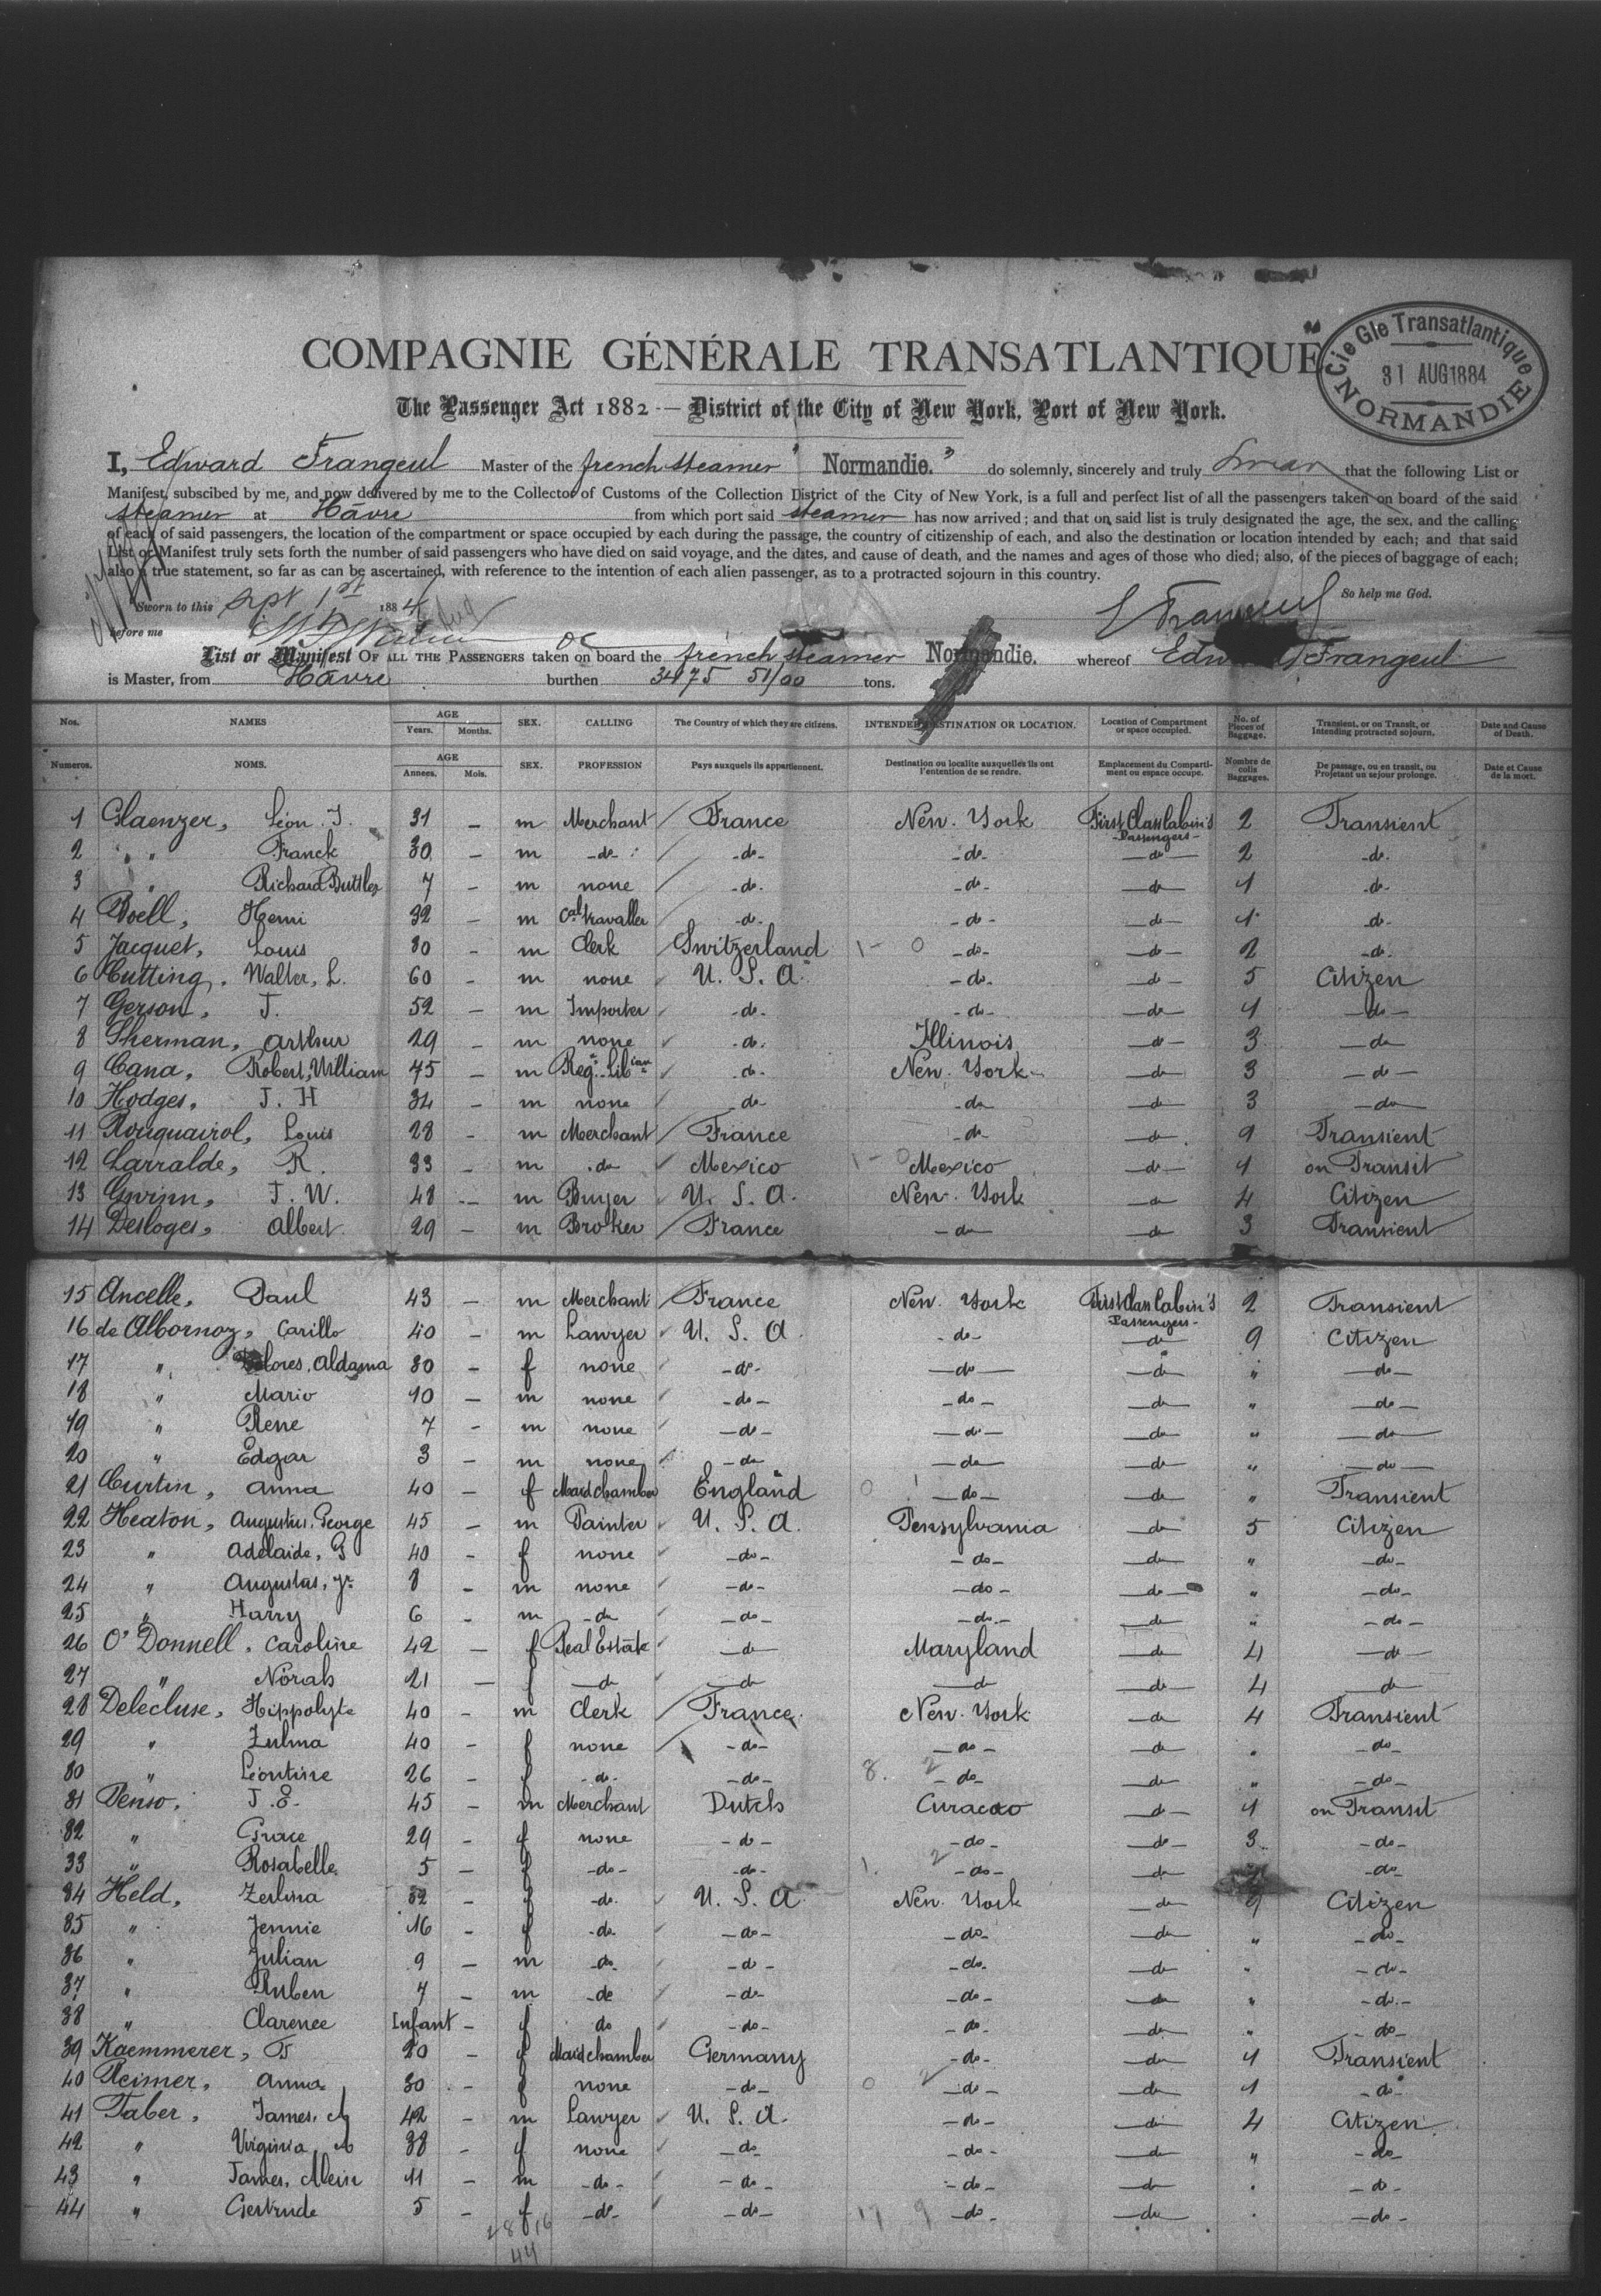 COMPAGNIE GÉNÉRALE TRANSATLANTIQUE
Cie Gle Transatlantique
31 AUG 1884
NORMANDIE
The Passenger Act 1882 — District of the City of New York, Port of New York.
I, Edward Frangeul Master of the french steamer " Normandie. " do solemnly, sincerely and truly swear that the following List or
Manifest, subscibed by me, and now delivered by me to the Collector of Customs of the Collection District of the City of New York, is a full and perfect list of all the passengers taken on board of the said
steamer at Hâvre from which port said steamer has now arrived; and that on said list is truly designated the age, the sex, and the calling
of each of said passengers, the location of the compartment or space occupied by each during the passage, the country of citizenship of each, and also the destination or location intended by each; and that said
List or Manifest truly sets forth the number of said passengers who have died on said voyage, and the dates, and cause of death, and the names and ages of those who died; also, of the pieces of baggage of each;
also a true statement, so far as can be ascertained, with reference to the intention of each alien passenger, as to a protracted sojourn in this country.
So help me God.
Sworn to this Sept 1st 1884
E Frangeul
before me
List or Manifest OF ALL THE PASSENGERS taken on board the french steamer Normandie. whereof Edward Frangeul
is Master, from Hâvre burthen 3475 51/00 tons.
Nos. NAMES AGE Years. Months. SEX. CALLING The Country of which they are citizens. INTENDED DESTINATION OR LOCATION. Location of Compartment or space occupied. No. of Pieces of Baggage. Transient, or on Transit, or Intending protracted sojourn. Date and Cause of Death.
Numeros. NOMS. AGE Annees. Mois. SEX. PROFESSION Pays auxquels ils appartiennent. Destination ou localite auxquelles ils ont l'intention de se rendre. Emplacement du Compartiment ou espace occupe. Nombre de colis Bagages. De passage, ou en transit, ou Projetant un sejour prolonge. Date et Cause de la mort.
1 Glaenzer, Léon. J. 31 — m Merchant France New. York First Class Cabin's Passengers 2 Transient
2 " " Franck 30 — m -do- -do- -do- -do- 2 -do-
3 " Richard Buttler 7 — m none -do- -do- -do- 1 -do-
4 Boell, Henri 32 — m Cal travaller -do- -do- -do- 1 -do-
5 Jacquet, Louis 30 — m Clerk Switzerland -do- -do- 2 -do-
6 Cutting, Walter, L. 60 — m none U. S. A. -do- -do- 5 Citizen
7 Gerson, J. 52 — m Importer -do- -do- -do- 1 -do-
8 Sherman, Arthur 29 — m none -do- Illinois -do- 3 -do-
9 Cana, Robert, William 45 — m -do- New. York -do- 3 -do-
10 Hodges, J. H 34 — m none -do- -do- -do- 3 -do-
11 Rouquairol, Louis 28 — m Merchant France -do- -do- 9 Transient
12 Larralde, R. 33 — m -do- Mexico Mexico -do- 1 on Transit
13 Gwinn, J. W. 48 — m Buyer U. S. A. New. York -do- 4 Citizen
14 Desloges, Albert 29 — m Broker France -do- -do- 3 Transient
15 Ancelle, Paul 43 — m Merchant France New. York First Class Cabin's Passengers 2 Transient
16 de Albornoz, Carillo 40 — m Lawyer U. S. A -do- -do- 9 Citizen
17 " Dolores, Aldama 30 — f none -do- -do- -do- " -do-
18 " Mario 10 — m none -do- -do- -do- " -do-
19 " Rene 7 — m none -do- -do- -do- " -do-
20 " Edgar 3 — m none -do- -do- -do- " -do-
21 Curtin, Anna 40 — f Maid chamber England -do- -do- " Transient
22 Heaton, Augustus, George 45 — m Painter U. S. A. Pensylvania -do- 5 Citizen
23 " Adelaide, G 40 — f none -do- -do- -do- " -do-
24 " Augustas, Jr 8 — m none -do- -do- -do- " -do-
25 " Harry 6 — m -do- -do- -do- -do- " -do-
26 O'Donnell, Caroline 42 — f Real Estate -do- Maryland -do- 4 -do-
27 " Norah 21 — f -do- -do- -do- -do- 4 -do-
28 Delécluse, Hippolyte 40 — m Clerk France New. York -do- 4 Transient
29 " Zulma 40 — f none -do- -do- -do- " -do-
30 " Léontine 26 — f -do- -do- -do- -do- " -do-
31 Penso, J. E. 45 — m Merchant Dutch Curacao -do- 1 on Transit
32 " Grace 29 — f none -do- -do- -do- 3 -do-
33 " Rosabelle 5 — f -do- -do- -do- -do- -do-
34 Held, Zerlina 32 — f -do- U. S. A New. York -do- 9 Citizen
35 " Jennie 16 — f -do- -do- -do- -do- " -do-
36 " Julian 9 — m -do- -do- -do- -do- " -do-
37 " Ruben 7 — m -do- -do- -do- -do- " -do-
38 " Clarence Infant — f do -do- -do- -do- " -do-
39 Kaemmerer, F 20 — f Maid chamber Germany -do- -do- 1 Transient
40 Reimer, Anna 30 — f none -do- -do- -do- 1 -do-
41 Taber, James, A 42 — m Lawyer U. S. A. -do- -do- 4 Citizen
42 " Virginia A 38 — f none -do- -do- -do- " -do-
43 " James, Mein 11 — m -do- -do- -do- -do- " -do-
44 " Gertrude 5 — f -do- -do- -do- -do- " -do-
28 16
44